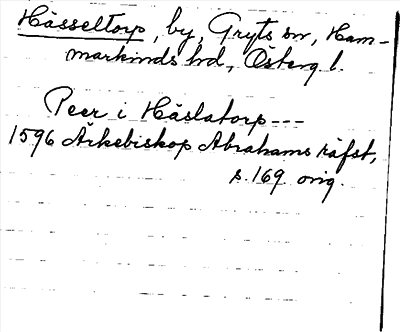 Hässeltorp, by, Gryts sn, Ham-
markinds hd, Österg. l.
Peer i Häslatorp ---
1596 Ärkebiskop Abrahams räfst,
s. 169 orig.